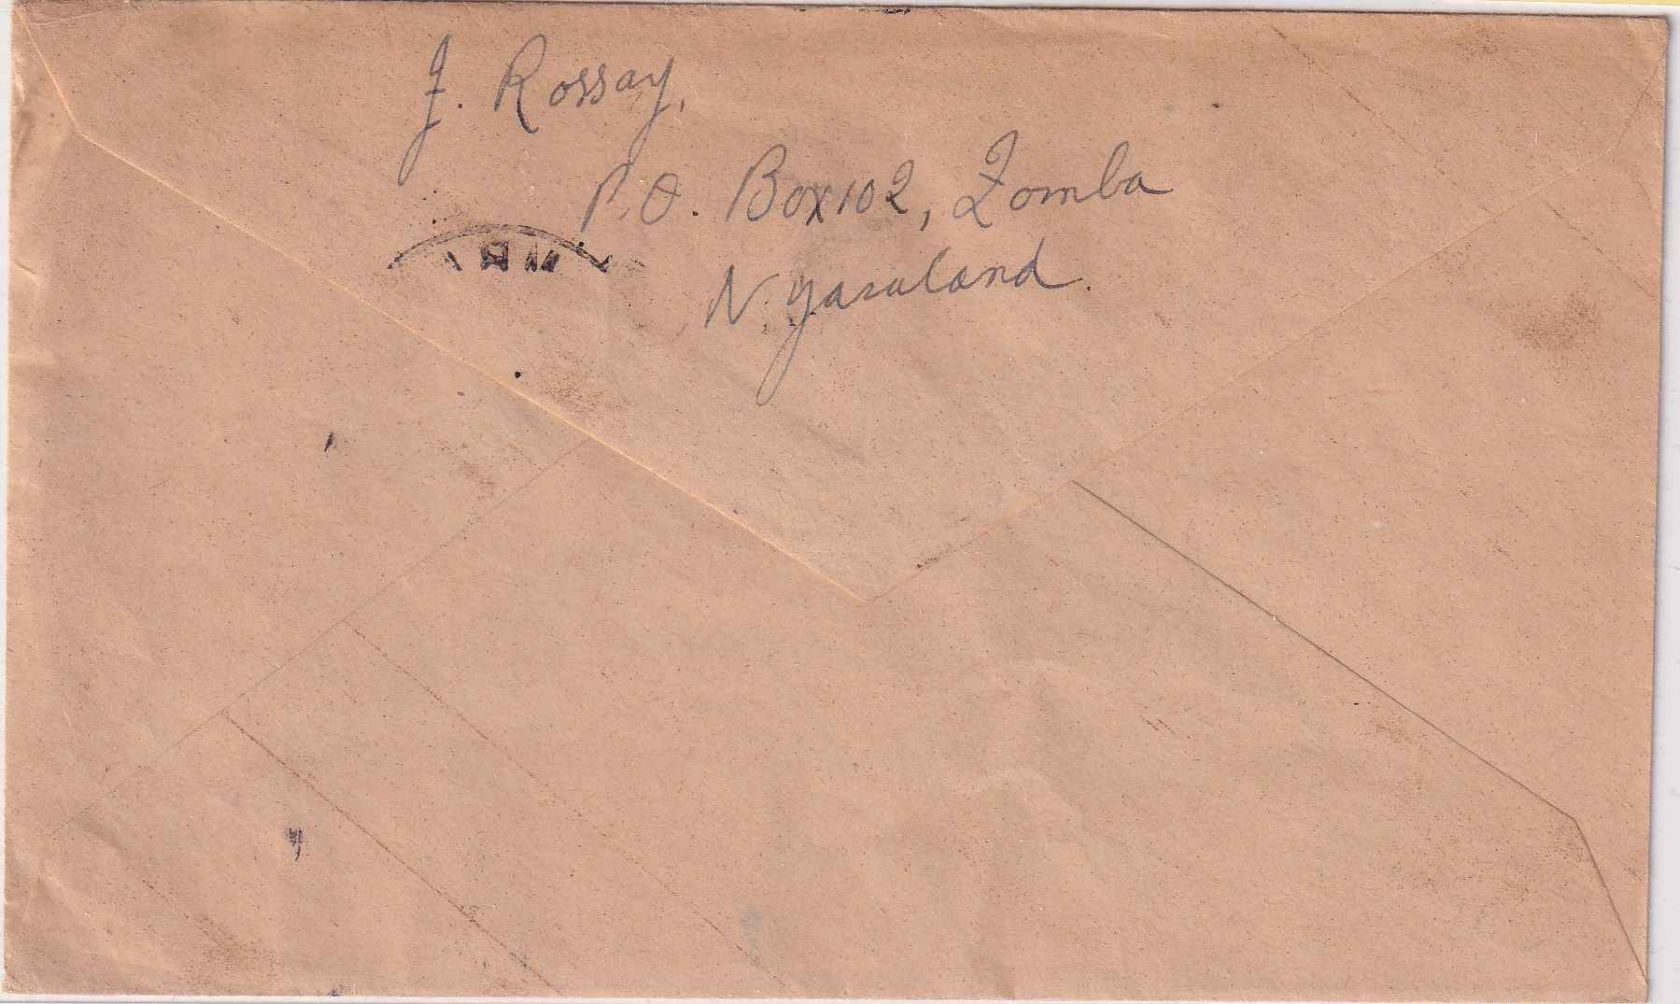 J. Rossay,
P.O. Box 102, Zomba
Nyasaland.